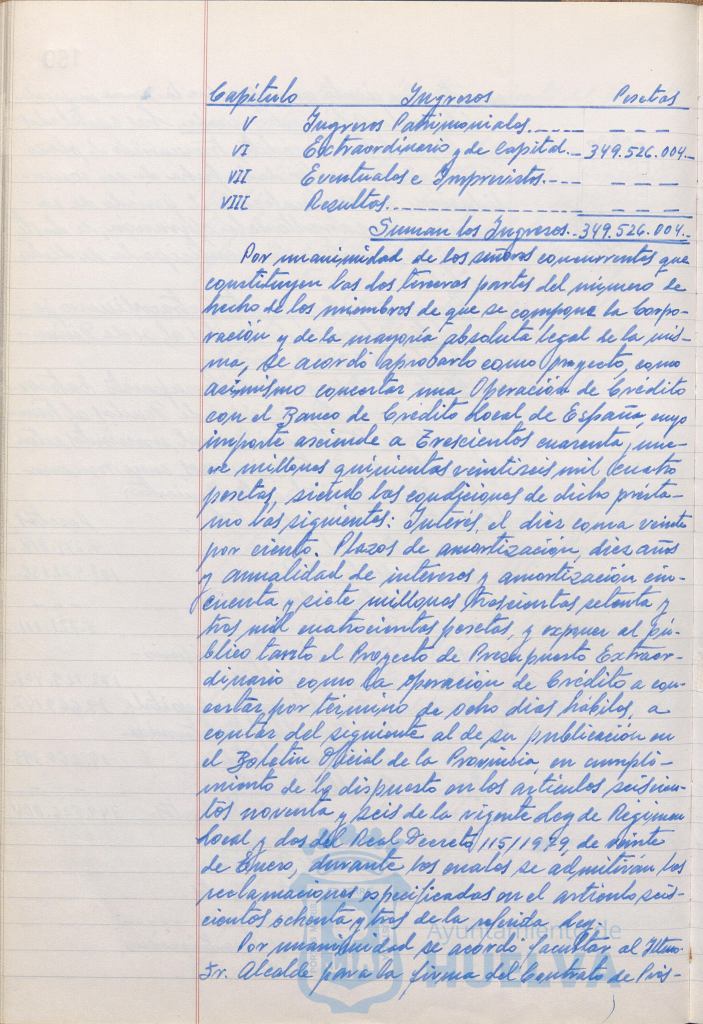 Capítulo Ingresos Pesetas
V Ingresos Patrimoniales.---- ---
VI Extraordinario y de Capital.- 349.526.004.-
VII Eventuales e Imprevistos.--- ---
VIII Resultas.------------ ---
Suman los Ingresos.- 349.526.004.-
Por unanimidad de los señores concurrentes que
constituyen las dos terceras partes del número de
hecho de los miembros de que se compone la Corpo-
ración y de la mayoría absoluta legal de la mis-
ma, se acordó aprobarlo como proyecto, como
asimismo concertar una Operación de Crédito
con el Banco de Crédito Local de España, cuyo
importe asciende a Trescientos cuarenta y nue-
ve millones quinientas veintiseis mil cuatro
pesetas, siendo las condiciones de dicho présta-
mo las siguientes: Interés, el diez coma veinte
por ciento. Plazos de amortización, diez años
y anualidad de intereses y amortización cin-
cuenta y siete millones trescientas setenta y
tres mil cuatrocientas pesetas, y exponer al pú-
blico tanto el Proyecto de Presupuesto Extraor-
dinario como la Operación de Crédito a con-
certar por término de ocho días hábiles, a
contar del siguiente al de su publicación en
el Boletín Oficial de la Provincia, en cumpli-
miento de lo dispuesto en los artículos seiscien-
tos noventa y seis de la vigente Ley de Régimen
Local y dos del Real Decreto 115/1979, de veinte
de Enero, durante los cuales se admitirán las
reclamaciones especificadas en el artículo seis-
cientos ochenta y tres de la referida Ley.
Por unanimidad se acordó facultar al Iltmo.
Sr. Alcalde para la firma del Contrato de Prés-
Ayuntamiento de
HUELVA